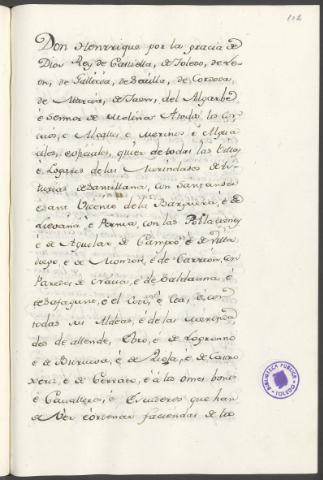 112
Don Henrrique por la gracia de
Dios Rey de Castiella, de Toledo, de Le-
on, de Gallicia, de Sevilla, de Cordova,
de Murcia, de Jaen, del Algarbe,
é Sennor de Molina: A todos los Con-
cejos, é Alcalles é Merinos é Algua-
ciles, é oficiales, de todas las Villas
é Logares de las Merindades de As-
turias de Santillana, con Santander
é Sant Vicente de la Barquera, é de
Lievana é Pernia, con las
é de Aguilar de Campó é de Villa
diego, é de Monzon, é de Carrion, con
Paredes, de Grajal, é de Saldanna, é
de Safagunt, é el Cea, é con
todas sus Aldeas, é de las Merinda-
des de allende Ebro, é de Logronno
é de Burueva, é de Rioja, é de Castro
xeriz, é de Cerrato, é á los omes bonos
é Cavalleros, é Escuderos que han
de ver é ordenar faciendas de los
BIBLIOTECA PUBLICA
TOLEDO